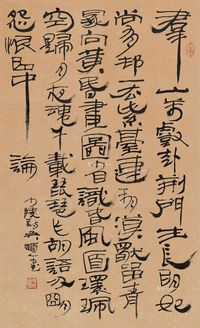 羣山萬壑赴荊門生長明妃
尚有邨一去紫臺連朔漠獨留青
冢向黃昏畫圖省識春風面環珮
空歸月夜魂千載琵琶作胡語分明
怨恨曲中論
少陵詩